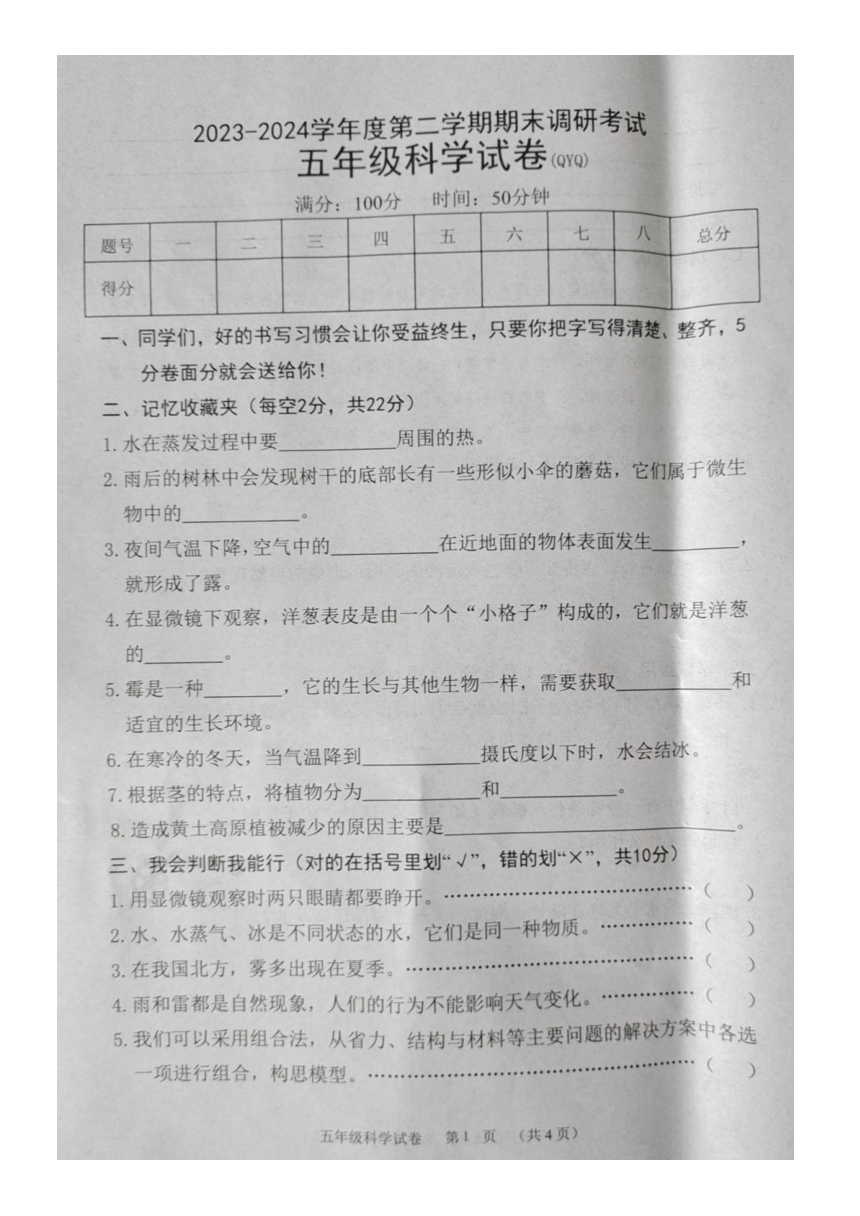 2023-2024学年度第二学期期末调研考试
五年级科学试卷(QYQ)
满分：100分 时间：50分钟
题号 一 二 三 四 五 六 七 八 总分
得分
一、同学们，好的书写习惯会让你受益终生，只要你把字写得清楚、整齐，5
分卷面分就会送给你！
二、记忆收藏夹（每空2分，共22分）
1.水在蒸发过程中要__________周围的热。
2.雨后的树林中会发现树干的底部长有一些形似小伞的蘑菇，它们属于微生
物中的__________。
3.夜间气温下降，空气中的__________在近地面的物体表面发生________，
就形成了露。
4.在显微镜下观察，洋葱表皮是由一个个“小格子”构成的，它们就是洋葱
的_______。
5.霉是一种_______，它的生长与其他生物一样，需要获取__________和
适宜的生长环境。
6.在寒冷的冬天，当气温降到__________摄氏度以下时，水会结冰。
7.根据茎的特点，将植物分为__________和__________。
8.造成黄土高原植被减少的原因主要是__________________________。
三、我会判断我能行（对的在括号里划“√”，错的划“×”，共10分）
1.用显微镜观察时两只眼睛都要睁开。……………………………（ ）
2.水、水蒸气、冰是不同状态的水，它们是同一种物质。…………（ ）
3.在我国北方，雾多出现在夏季。…………………………………（ ）
4.雨和雷都是自然现象，人们的行为不能影响天气变化。…………（ ）
5.我们可以采用组合法，从省力、结构与材料等主要问题的解决方案中各选
一项进行组合，构思模型。………………………………………（ ）
五年级科学试卷 第1 页 （共4页）